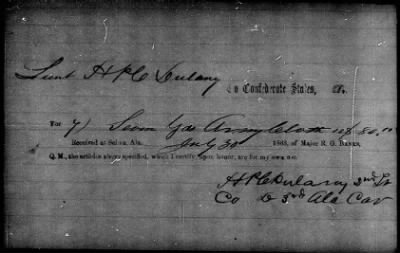 Lieut H P C Dulany
To Confederate States, Dr.
For 7) Seven Yds Army Cloth
Received at Selma, Ala. July 30 1863, of Major R. G. Banks,
Q. M., the articles above specified, which I certify upon honor, are for my own use.
H P C Dulany 2nd Lt
Co D 3rd Ala Cav